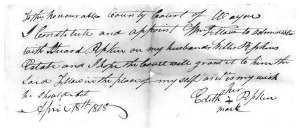 To the honourable County Court of Wayne
I constitute and appoint to administer
with Stuard Pipkin on my husband Pipkins
Estate and I hope the Court will grant it to him the
said in the place of my self and it is my wish
he should act
April 18th 1818 Edith Pipkin
her
mark